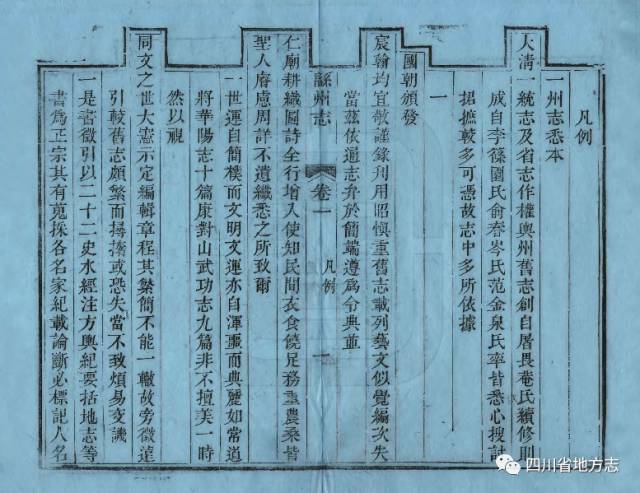 凡例
一州志悉本
大清一統志及省志作權輿州舊志創自屠畏菴氏續修則
成自李篠園氏俞春岑氏范金泉氏率皆悉心搜討
招摭較多可憑故志中多所依據
一
國朝頒發
宸翰均宜敬謹錄刋用昭愼重舊志載列藝文似覺編次失
當茲依通志弁於簡端遵爲令典並
緜州志 卷一 凡例 一
仁廟耕織圖詩全行增入使知民間衣食饒足務重農桑皆
聖人睿慮周詳不遺纖悉之所致爾
一世運自簡樸而文明文運亦自渾噩而典麗如常道
將華陽志十篇康對山武功志九篇非不擅美一時
然以視
同文之世大憲示定編輯章程其繁簡不能一轍故旁徵遠
引較舊志頗繁而撏撦或恐失當不致煩易交譏
一是書徵引以二十二史水經注方輿紀要括地志等
書爲正宗其有蒐採各名家紀載論斷必標記人名
四川省地方志